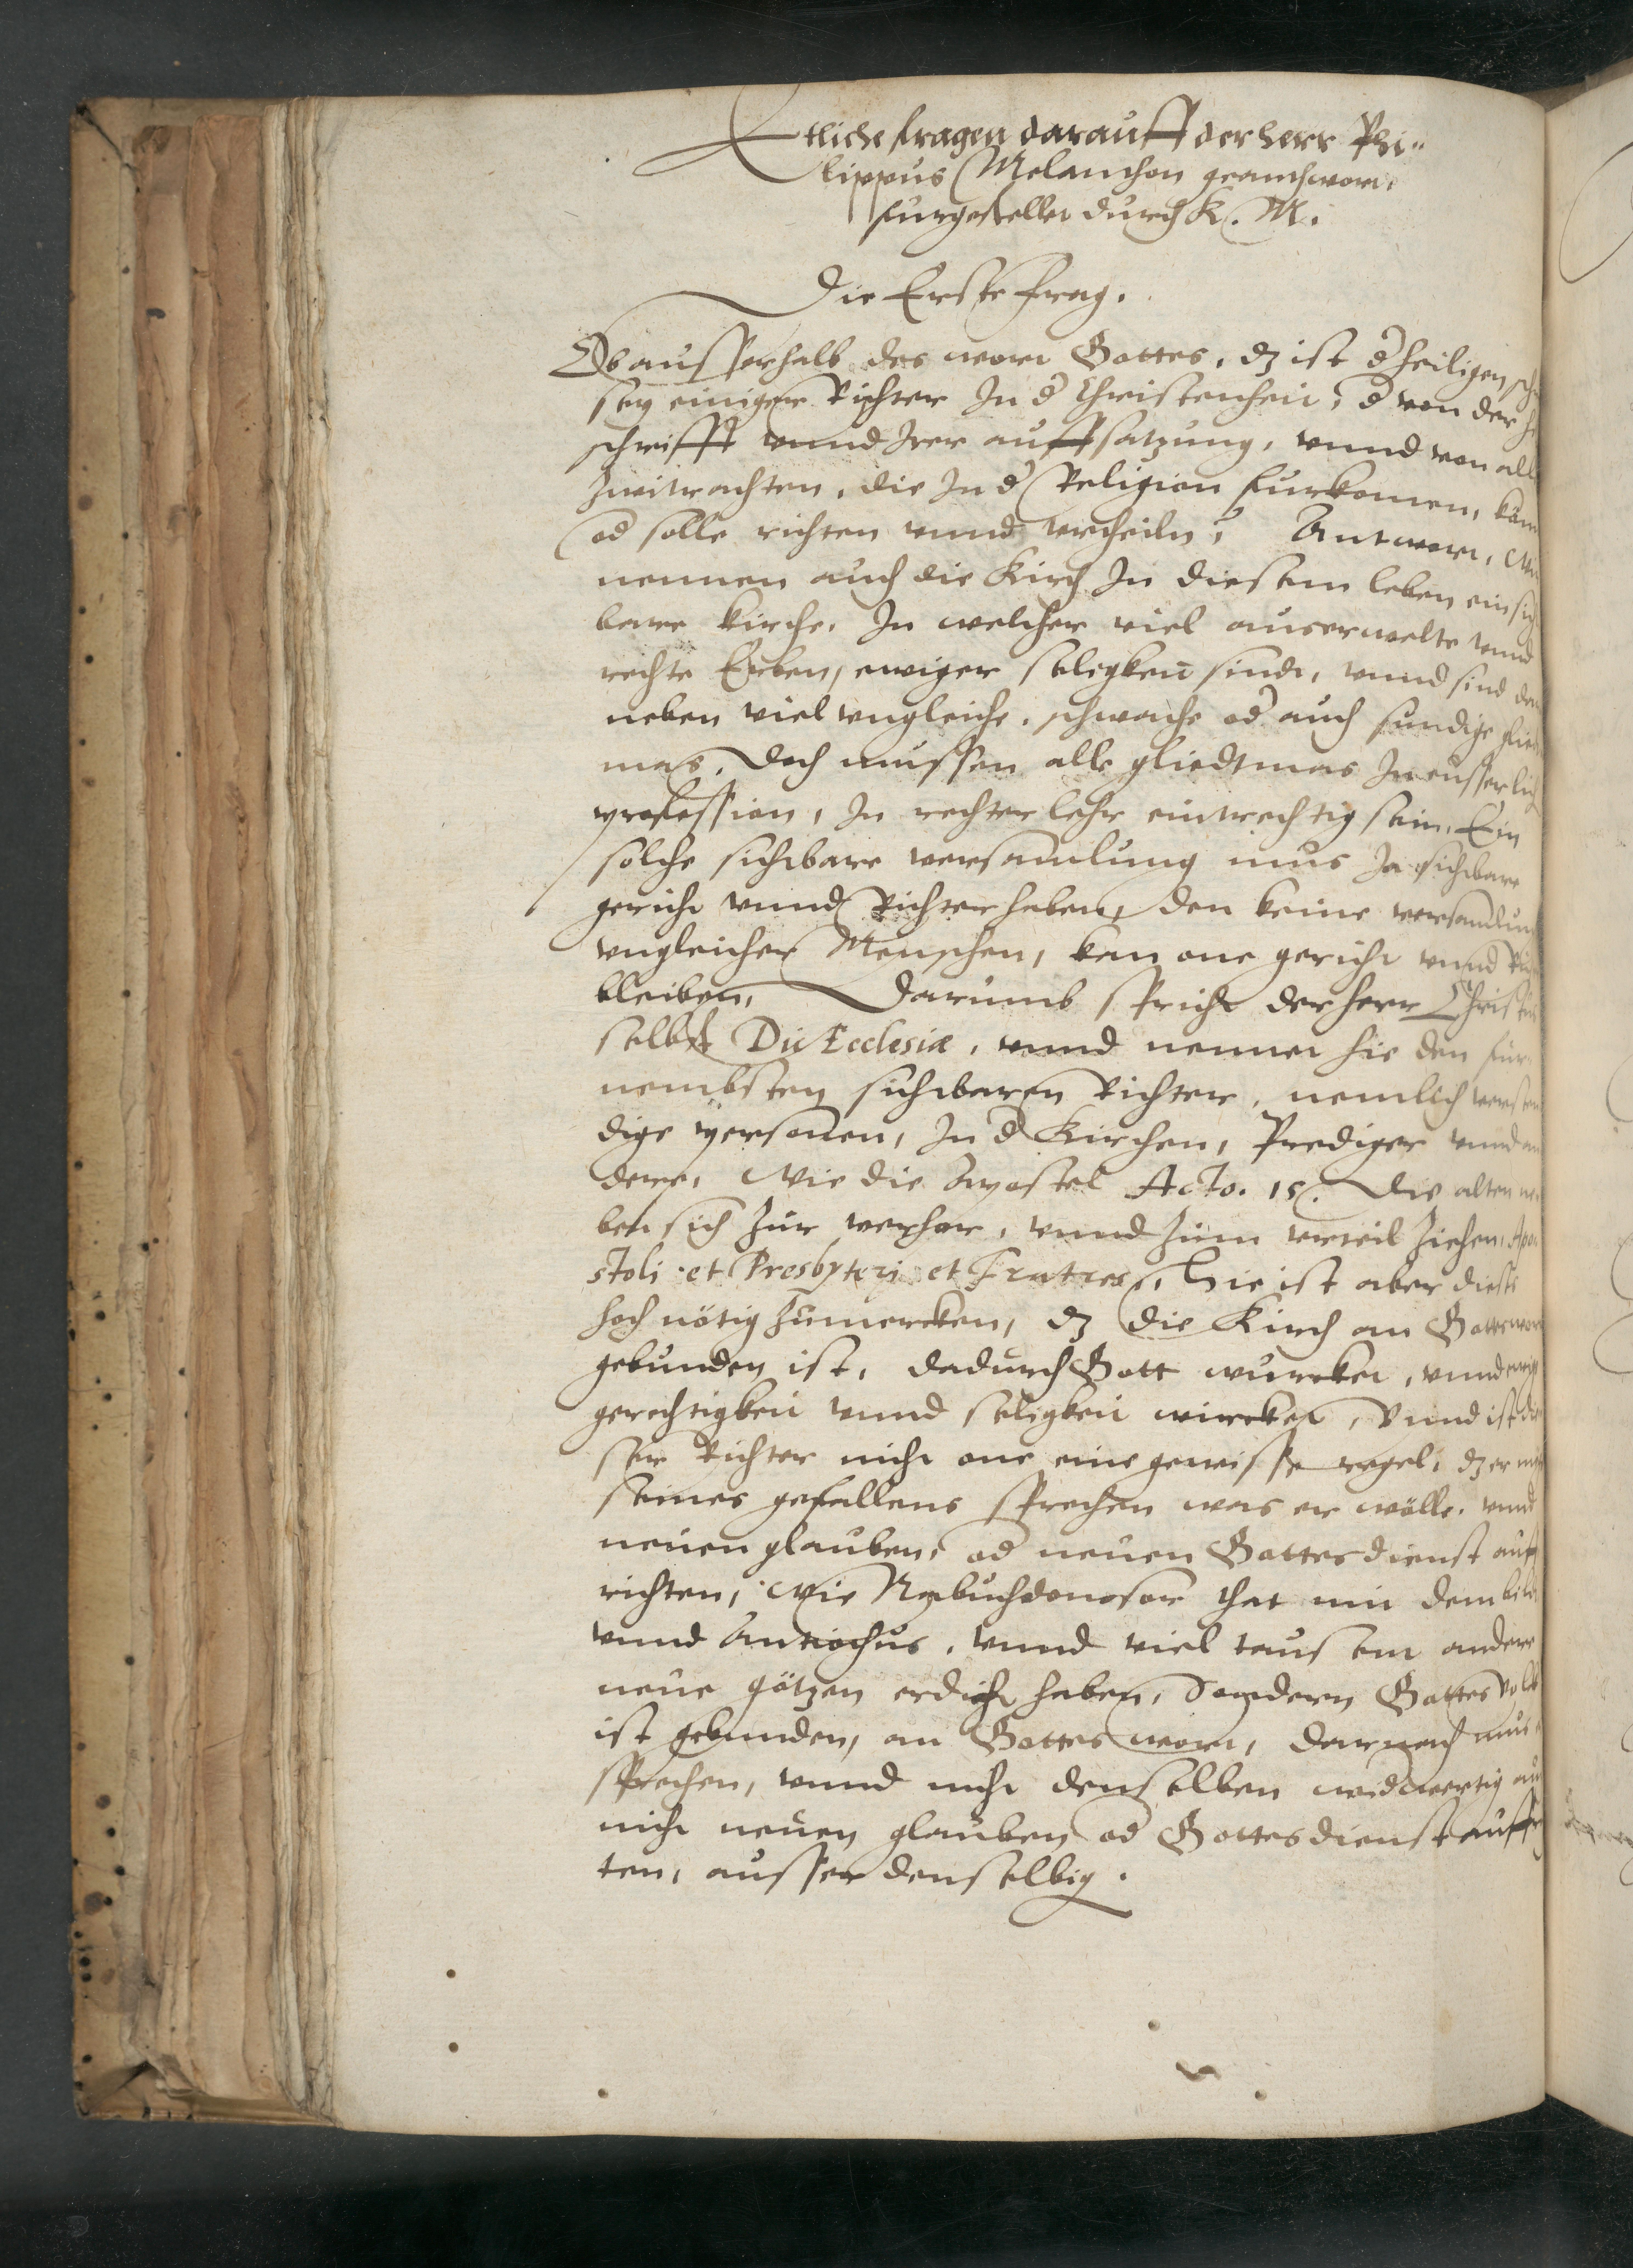 Etliche fragen darauff der herr Phi„
lippus Melanthon geanthwort,
furgestellet durch K. M.
Die Erste frag.
Ob ausserhalb des wort Gottes, dz ist d heiligen
sey einiger Richter In d Christenheit, d von der
schrifft vnnd Irer auffsatzung, vnnd von all
Zwitrachten, die In d Religion furkomen,
od solle richten vnnd vrtheiln? Antwort,
nennen auch die Kirch In diesem leben ein sich
bare kirche. In welcher viel auserwelte vnnd
rechte Erben, ewiger seligkeit sindt, vnnd sind dar
neben viel vngleiche, schwache od auch sundige glied
mas. Doch mussen alle gliedtmas In eusserlich
profession, In rechter lehr eintrechtig sein. Ein
solche sichtbare versamlung mus Ja sichtbare
gericht vnnd Richter haben, den keine versamlung
vngleicher Menschen, kan one gericht vnnd
bleiben, Darumb spricht der herr Christus
selbst Dic Ecclesiæ, vnnd nennet hie den fur
nembsten sichtbaren Richter, nemlich versten
dige personen, In d Kirchen, Prediger vnnd an
dere, Wie die Apostel Acto. 15. Die alten ne
ben sich zur verhor, vnnd zum vrteil ziehen, Apo
stoli et Presbyteri et Fratres, Hie ist aber dieses
hoch nötig zumercken, dz die Kirch an Gottes wort
gebunden ist, dadurch Gott wurcket, vnnd ewige
gerechtigkeit vnnd seligkeit wircket, Vnnd ist die
ser Richter nicht one eine gewisse regel, dz er nicht
seines gefallens sprechen was er wölle, vnnd
neuen glauben, od neuen Gottesdienst auff
richten, Wie Nabuchdonosor that mit dem bild
vnnd Antiochus, vnnd viel tausent andere
neue götzen erdicht haben, Sondern Gottes volck
ist gebunden, an Gottes wort, darnach mus
sprechen, vnnd nicht denselben widwertig
nicht neuen glauben od Gottesdienst auff
ten, ausser denselbig.